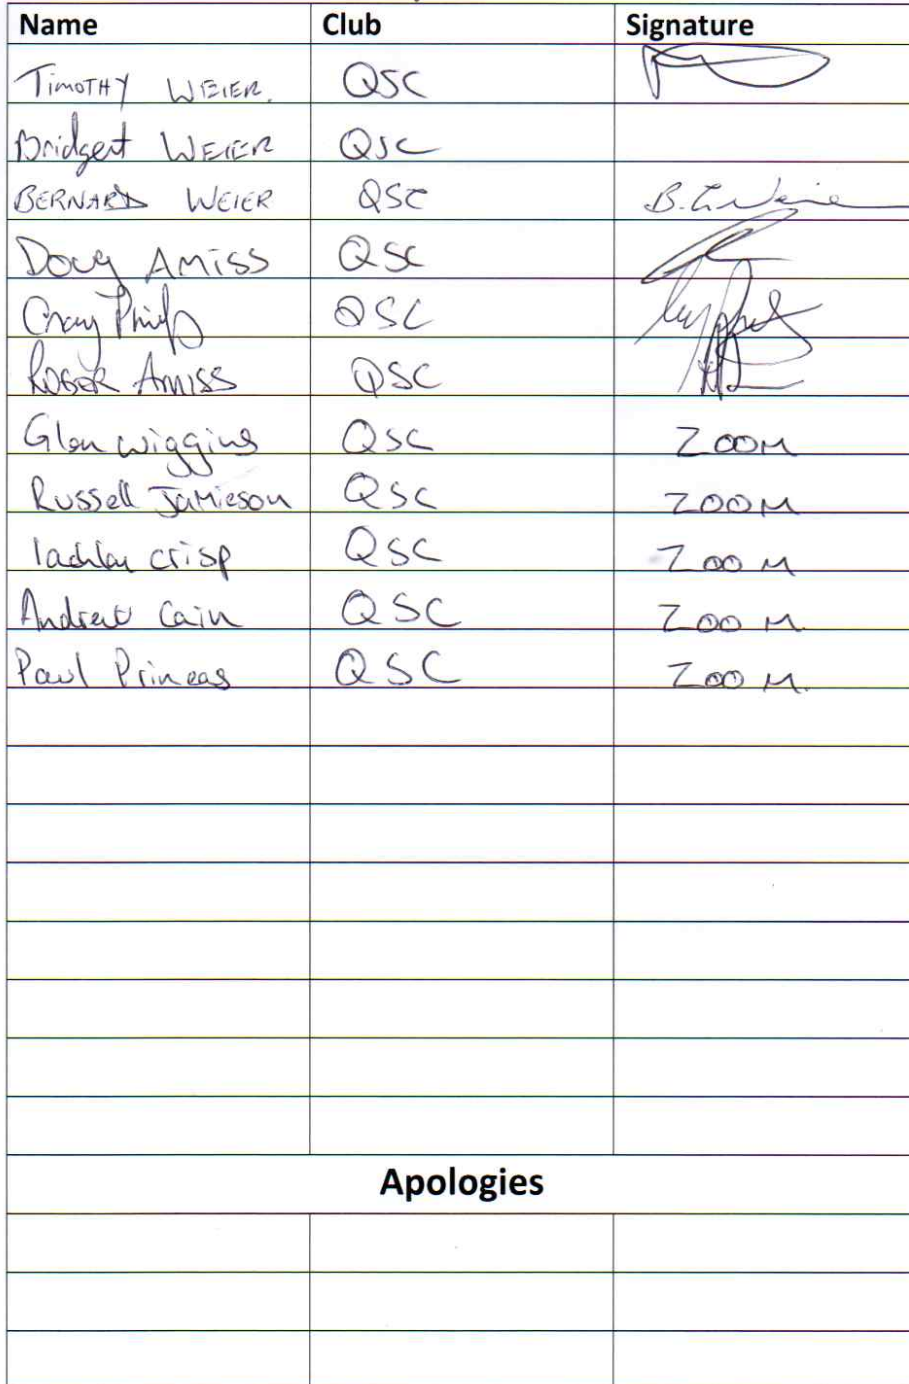 Name Club Signature
TIMOTHY WEIER. QSC
Bridgent WEIER QSC
BERNARD WEIER QSC
Doug AMISS QSC
QSC
ROGER AMISS QSC
Glen wiggins QSC ZOOM
Russell Jamieson QSC ZOOM
lachlan crisp QSC ZOOM
Andrew Cain QSC ZOOM.
Paul Prineas QSC ZOOM.
Apologies